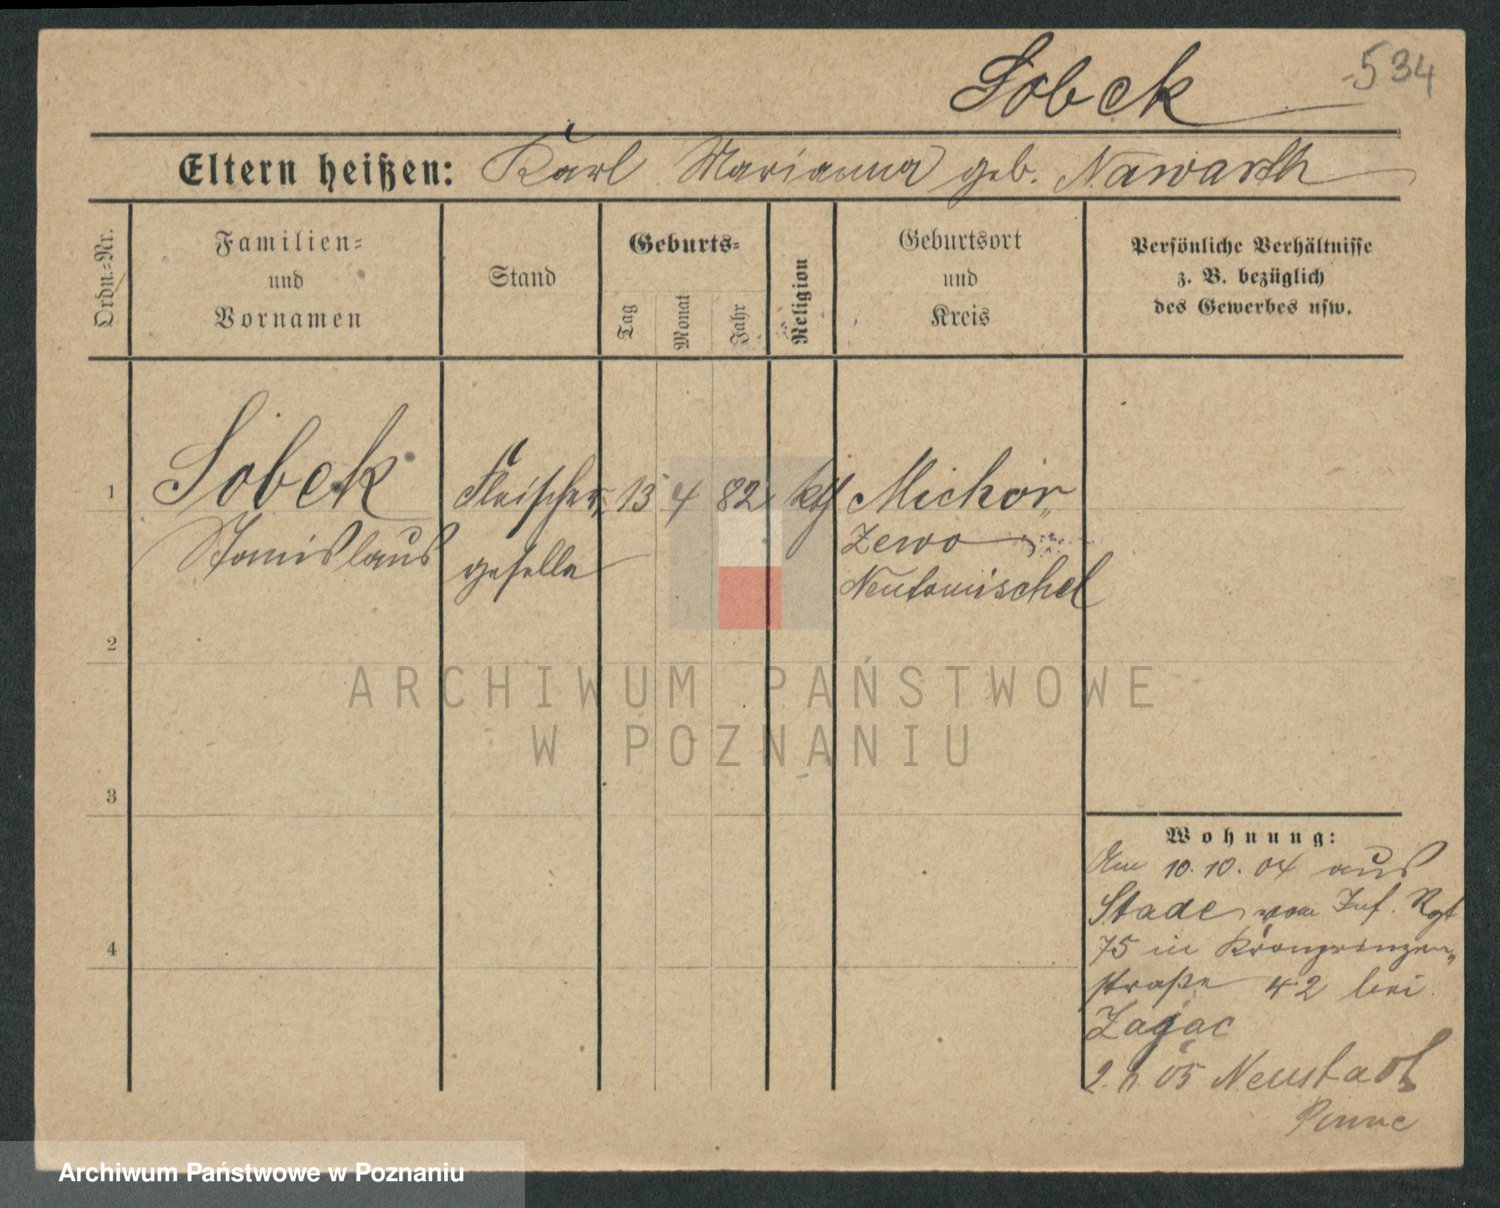 534
Sobek
Eltern heißen: Karl Marianna geb. Nawarth
Ordn.-Nr.
Familien-
und
Vornamen
Stand
Geburts-
Tag
Monat
Jahr
Religion
Geburtsort
und
Kreis
Persönliche Verhältnisse
z. B. bezüglich
des Gewerbes usw.
1
Sobek Fleischer 13 4 82 kth Michor„
Stanislaus geselle Zewo
Neutomischel
2
ARCHIWUM PAŃSTWOWE
W POZNANIU
3
Wohnung:
Am 10.10.04 aus
Stade vom Inf. Rgt
75 in Kronprinzen„
straße 42 bei
4
Zając
05 Neustadt
Pinne
Archiwum Państwowe w Poznaniu